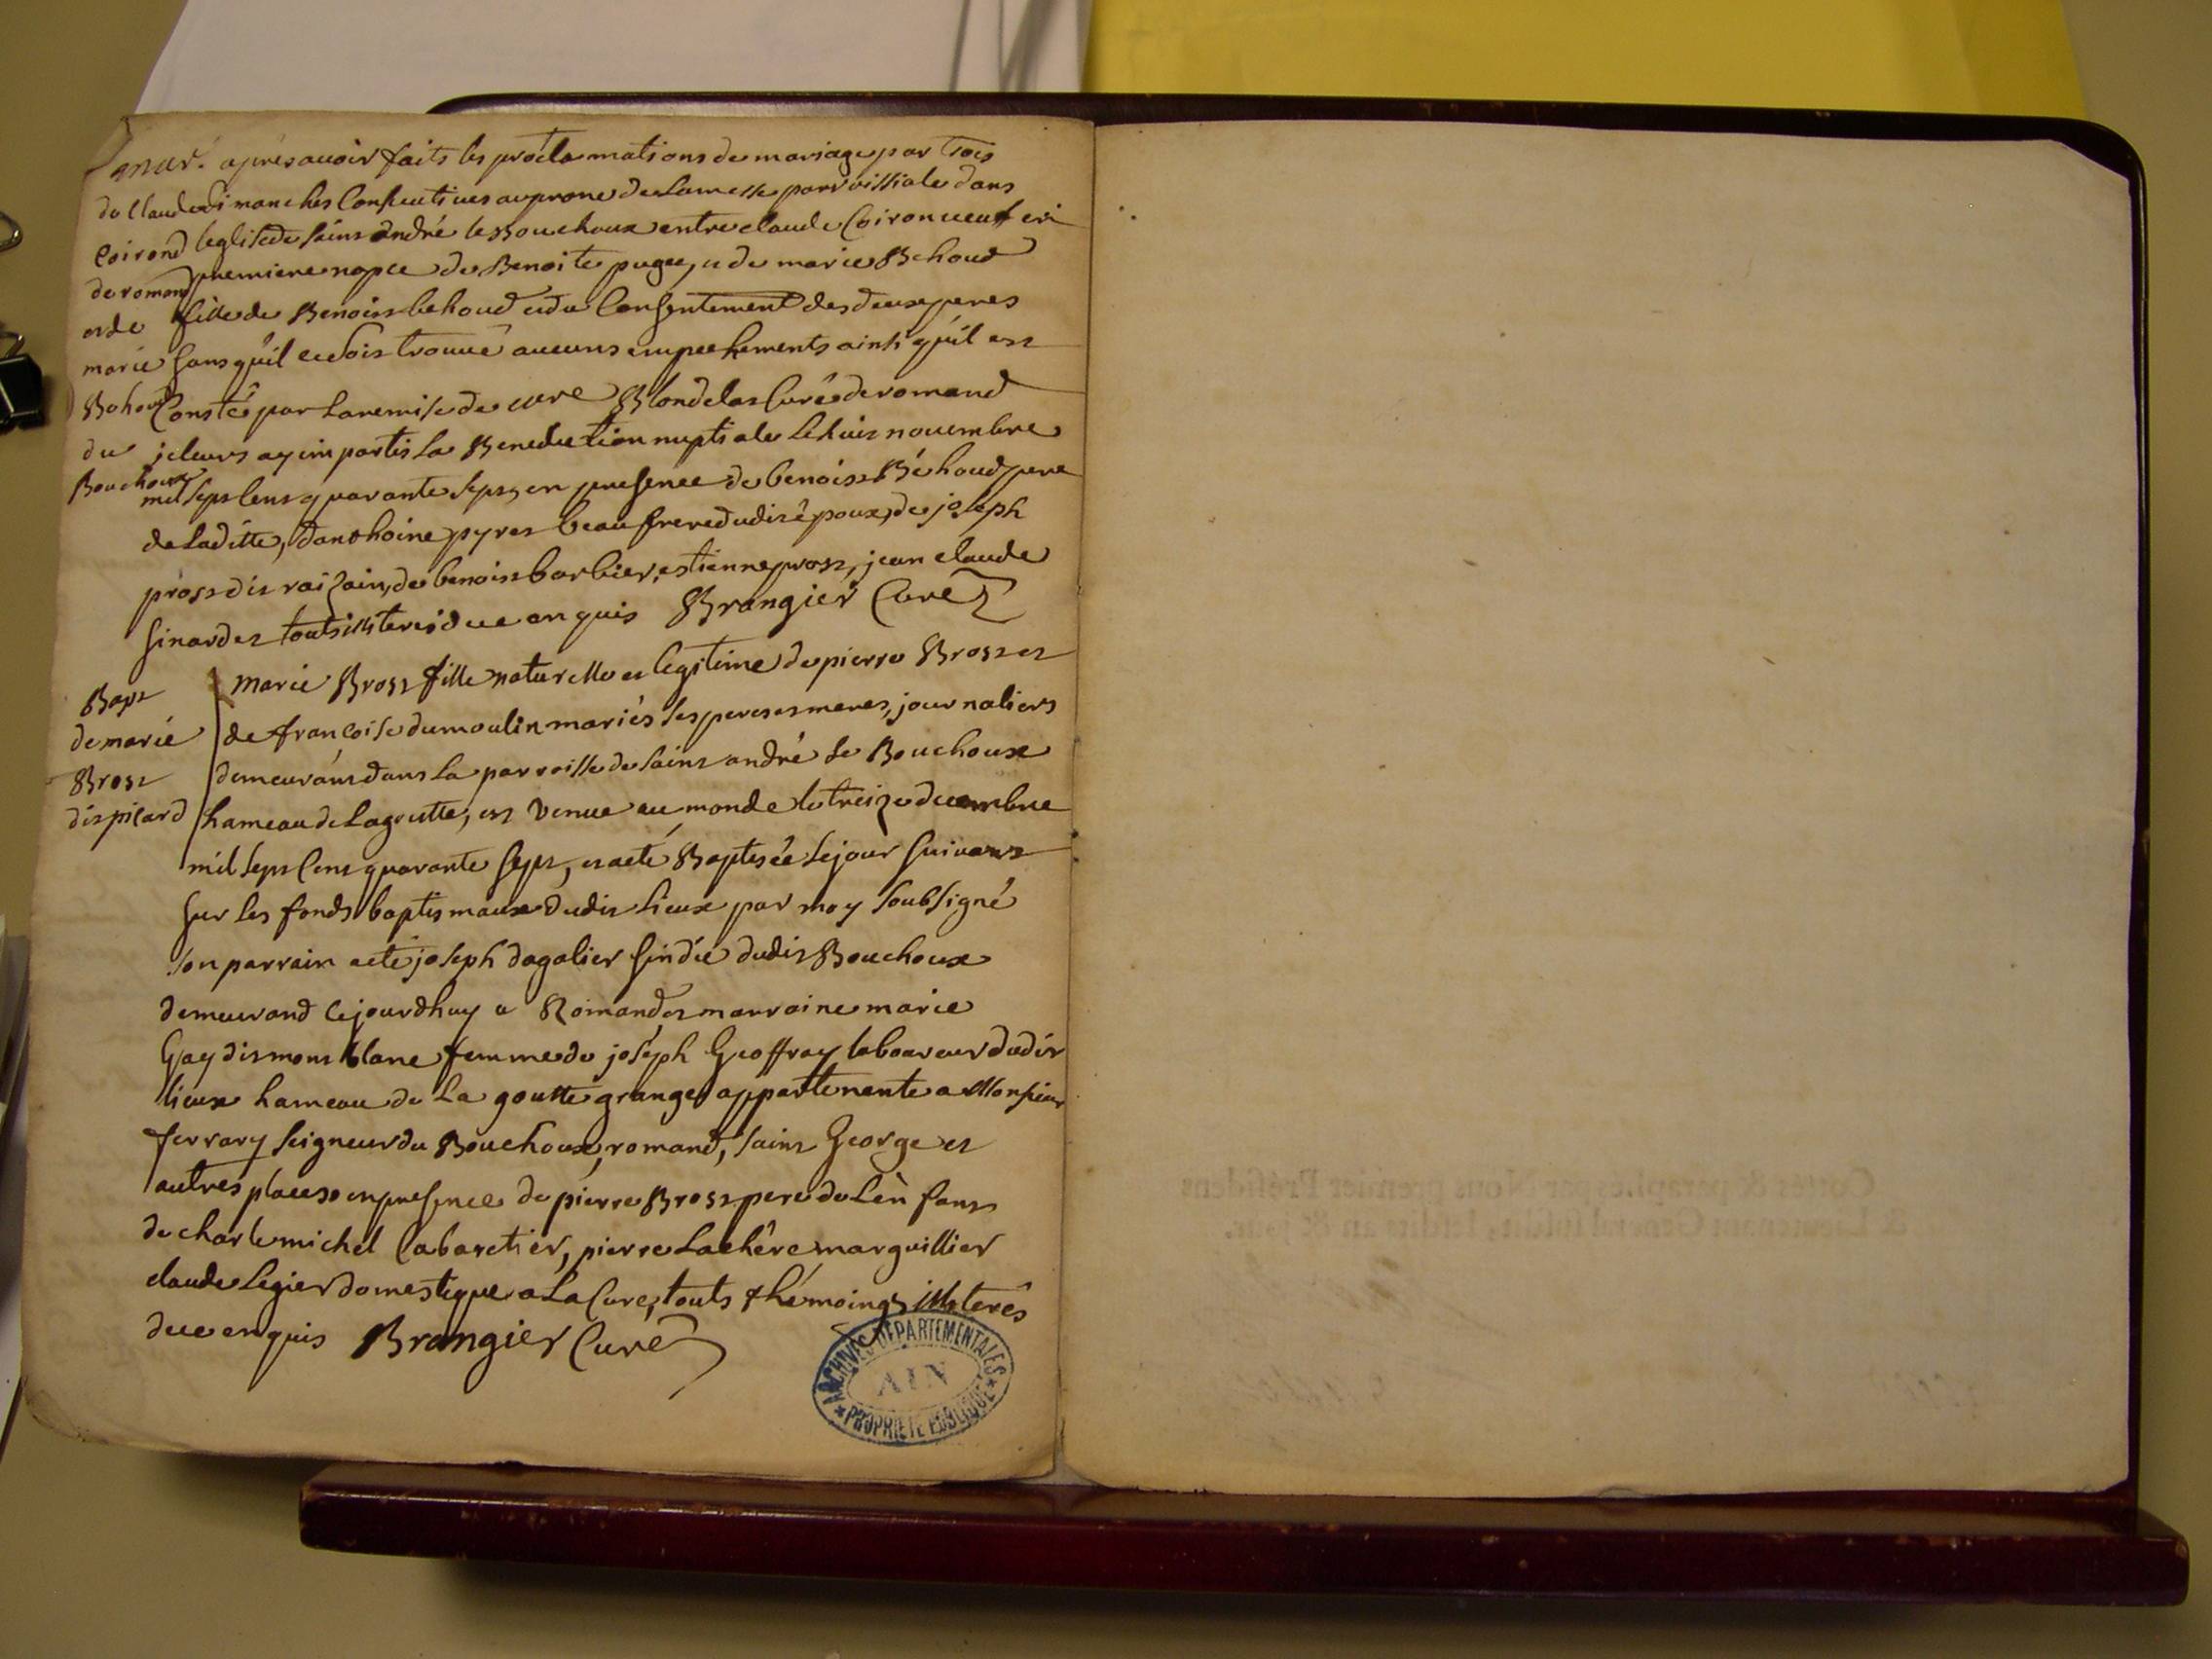 mar. après avoir faits les proclamations de mariage par trois
de Claude dimanches Consecutives au prone de la messe parroissiale dans
Coirond leglise de saint andré le Bouchoux entre claude Coiron veuf en
de romand premiere nopce de Benoite pugez, e de marie Behoud
et de fille de Benoist behoud et du Consentement des deux peres
marie sans qu'il ce soit trouvé aucuns empechements ainsi qu'il est
Behoud Constée par la remise de cure Blondelas Curé de romand
du je leurs ay imparties la Benediction nuptiale le huit novembre
Bouchoux mil sept Cens quarante sept, en presence de benoist Béhoud pere
de laditte, d'anthoine pyret beau frere dudit époux, de joseph
prost dit raizain, de benoist barbier, estienne prost, jean claude
sinardet touts illiteres de ce enquis Brangier Curé
Bapt marie Brost fille naturelle et legitime de pierre Brost et
de marie de francoise dumoulin mariés ses peres et meres, journaliers
Brost demeurant dans la parroisse de saint andré le Bouchoux
dit picard hameau de la goutte, est venue au monde le treize decembre
mil sept Cens quarante sept, et a eté Baptisée le jour suivant
sur les fonds baptismaux dudit lieux par moy soubsigné
son parrain a eté joseph dagalier sindic dudit Bouchoux
demeurand cejourdhuy a Romand, et marraine marie
Gay dit mont blanc femme de joseph Geoffray laboureur dudit
lieux hameau de la goutte grange appartenente a Monsieur
ferrary seigneur du Bouchoux, romand, saint George et
autres places en presence de pierre Brost pere de l'en fant
de charle michel Cabaretier, pierre Lachêre marguillier
claude legier domestique a la Cure, touts themoings illiterés
de ce enquis Brangier Curé
ARCHIVES DEPARTEMENTALES
AIN
PROPRIETE PUBLIQUE
Cottés & paraphés par Nous premier Président
& Lieutenant General susdit, lesdits an & jour.